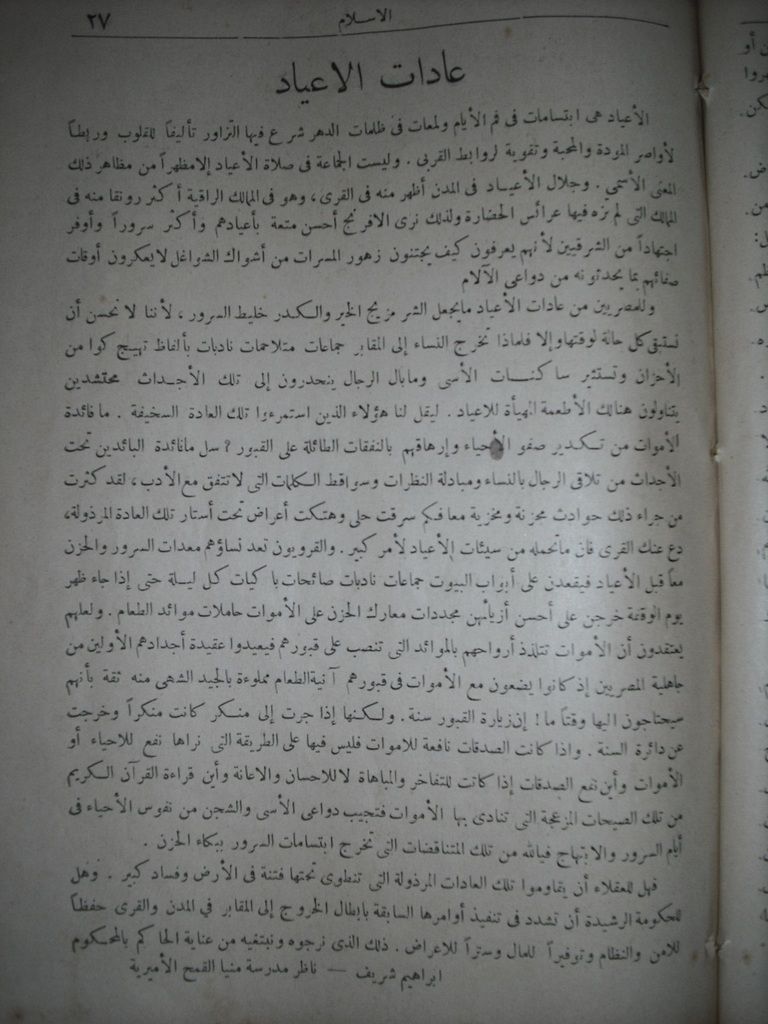 الاسلام
٢٧
عادات الاعياد
الأعياد هى ابتسامات فى فم الأيام ولمعات فى ظلمات الدهر شرع فيها التزاور تأليفاً للقلوب وربطاً
لأواصر المودة والمحبة وتقوية لروابط القربى . وليست الجماعة فى صلاة الأعياد إلا مظهراً من مظاهر ذلك
المعنى الأسمى . وجلال الأعياد فى المدن أظهر منه فى القرى ، وهو فى الممالك الراقية أكثر رونقا منه فى
الممالك التى لم تزه فيها عرائس الحضارة ولذلك نرى الافرنج أحسن متعة بأعيادهم وأكثر سروراً وأوفر
اجتهاداً من الشرقيين لأنهم يعرفون كيف يجتنون زهور المسرات من أشواك الشواغل لا يعكرون أوقات
صفائهم بما يحدثونه من دواعى الآلام
وللمصريين من عادات الأعياد ما يجعل الشر مزيج الخير والكدر خليط السرور ، لأننا لا نحسن أن
نستبقى كل حالة لوقتها وإلا فلماذا تخرج النساء إلى المقابر جماعات متلاحمات نادبات بألفاظ تهيج كوامن
الأحزان وتستثير ساكنات الأسى وما بال الرجال ينحدرون إلى تلك الأجداث محتشدين
يتناولون هنالك الأطعمة المهيأة للاعياد . ليقل لنا هؤلاء الذين استمرءوا تلك العادة السخيفة . ما فائدة
الأموات من تكدير صفو الأحياء وإرهاقهم بالنفقات الطائلة على القبور ؟ سل ما فائدة البائدين تحت
الأجداث من تلاقى الرجال بالنساء ومبادلة النظرات وسواقط الكلمات التى لا تتفق مع الأدب ، لقد كثرت
من جراء ذلك حوادث محزنة ومخزية معا فكم سرقت حلى وهتكت أعراض تحت أستار تلك العادة المرذولة،
دع عنك القرى فان ما تحمله من سيئات الأعياد لأمر كبير . والقرويون تعد نساؤهم معدات السرور والحزن
معاً قبل الأعياد فيقعدن على أبواب البيوت جماعات نادبات صائحات باكيات كل ليلة حتى إذا جاء ظهر
يوم الوقفة خرجن على أحسن أزيائهن مجددات معارك الحزن على الأموات حاملات موائد الطعام . ولعلهم
يعتقدون أن الأموات تتلذذ أرواحهم بالموائد التى تنصب على قبورهم فيعيدوا عقيدة أجدادهم الأولين من
جاهلية المصريين إذ كانوا يضعون مع الأموات فى قبورهم آنية الطعام مملوءة بالجيد الشهى منه ثقة بأنهم
سيحتاجون اليها وقتاً ما ! إن زيارة القبور سنة . ولكنها إذا جرت إلى منكر كانت منكراً وخرجت
عن دائرة السنة . واذا كانت الصدقات نافعة للاموات فليس فيها على الطريقة التى نراها نفع للاحياء أو
الأموات وأين نفع الصدقات إذا كانت للتفاخر والمباهاة لا للاحسان والاعانة وأين قراءة القرآن الكريم
من تلك الصيحات المزعجة التى تنادى بها الأموات فتجيب دواعى الأسى والشجن من نفوس الأحياء فى
أيام السرور والابتهاج فيالله من تلك المتناقضات التى تخرج ابتسامات السرور ببكاء الحزن .
فهل للعقلاء أن يقاوموا تلك العادات المرذولة التى تنطوى تحتها فتنة فى الأرض وفساد كبير . وهل
للحكومة الرشيدة أن تشدد فى تنفيذ أوامرها السابقة بابطال الخروج إلى المقابر في المدن والقرى حفظاً
للامن والنظام وتوفيراً للمال وستراً للاعراض . ذلك الذى نرجوه ونبتغيه من عناية الحاكم بالمحكوم
ابراهيم شريف — ناظر مدرسة منيا القمح الأميرية